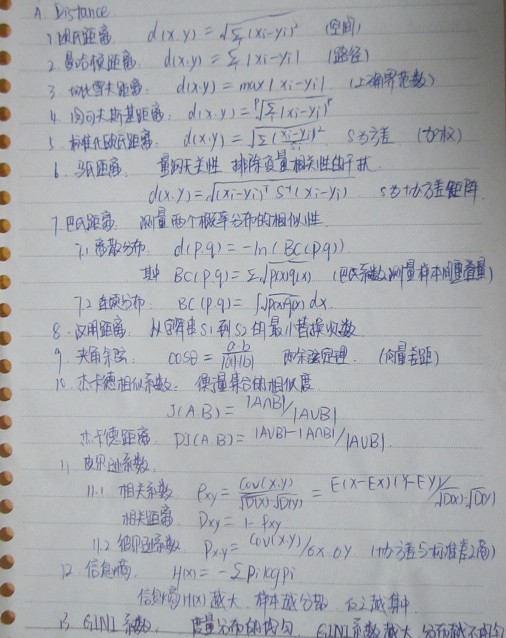 A. Distance
1. 欧氏距离. d(x.y) = √Σ(xi-yi)² (空间)
2. 曼哈顿距离. d(x.y) = Σ|xi-yi| (路径)
3. 切比雪夫距离. d(x.y) = max|xi-yi| (上确界范数)
4. 闵可夫斯基距离. d(x.y) = ᵖ√Σ|xi-yi|ᵖ
5. 标准化欧氏距离. d(x.y) = √Σ(xi-yi/s)² S为方差 (加权)
6. 马氏距离. 量纲无关性 排除变量相关性的干扰
d(x.y) = √(xi-yi)ᵀS⁻¹(xi-yi) S为协方差矩阵
7. 巴氏距离. 测量两个概率分布的相似性
7.1 离散分布. d(p.q) = -ln(BC(p.q))
其中 BC(p.q) = Σ√p(x)q(x) (巴氏系数测量样本间重叠量)
7.2 连续分布. BC(p.q) = ∫√p(x)q(x) dx.
8. 汉明距离. 从字符串S1到S2的最小替换次数
9. 夹角余弦 cosθ = a·b/|a||b| 余弦定理. (向量差距)
10. 杰卡德相似系数. 衡量集合的相似度
J(A.B) = |A∩B|/|A∪B|
杰卡德距离 DJ(A.B) = |A∪B|-|A∩B|/|A∪B|
11. 皮尔逊系数.
11.1 相关系数 ρxy = Cov(x.y)/√D(x).√D(y) = E(x-Ex)(Y-EY)/√D(x).√D(Y)
相关距离. Dxy = 1-ρxy
11.2 皮尔逊系数. Pxy = Cov(x.y)/σx.σy (协方差与标准差之商)
12. 信息熵. H(x) = -Σpi logpi
信息熵H(x)越大. 样本越分散 反之越集中
13. GINI系数. 度量分布的均匀. GINI系数越大 分布越不均匀